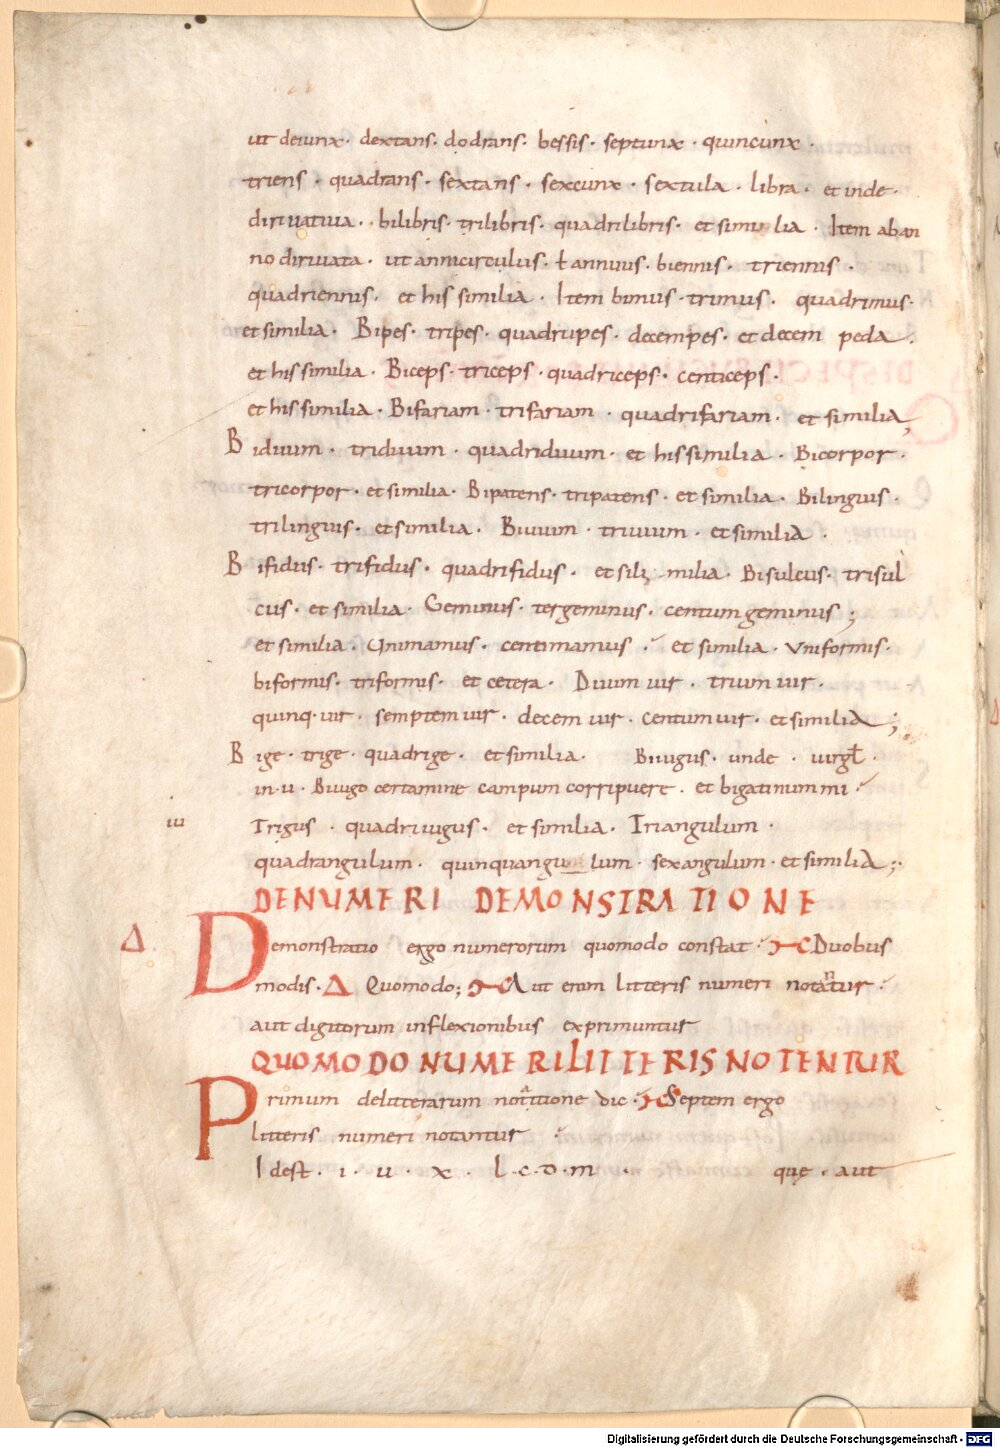 ut deiunx · dextans · dodrans · bessis · septunx · quincunx ·
triens · quadrans · sextans · sexcunx · sextula · libra · et inde ·
diriuatiua · bilibris · trilibris · quadrilibris · et simi lia · Item ab an
no diriuata · ut anniculus · ł annuus · biennis · triennis ·
quadriennis · et his similia · Item bimus · trimus · quadrimus ·
et similia · Bipes · tripes · quadrupes · decempes · et decem peda ·
et his similia · Biceps · triceps · quadriceps · centiceps ·
et his similia · Bifariam · trifariam · quadrifariam · et similia;
Biduum · triduum · quadriduum · et his similia · Bicorpor ·
tricorpor · et similia · Bipatens · tripatens · et similia · Bilinguis ·
trilinguis · et similia · Biuium · triuium · et similia ·
Bifidus · trifidus · quadrifidus · et simi milia · Bisulcus · trisul
cus · et similia · Geminus · tergeminus · centumgeminus;
et similia · Unimamus · centimamus · et similia · Uniformis ·
biformis · triformis · et cetera · Duumuir · triumuir ·
quinq· uir · semptem uir · decem uir · centumuir · et similia;
Bige · trige · quadrige · et similia · Biiugus · unde · uirgł ·
in · u · Biiugo certamine campum corripuere · et bigati nummi ·
iii
Trigus · quadriiugus · et similia · Triangulum ·
quadrangulum · quinquangu lum · sexangulum · et similia;
DE NUMERI DEMONSTRATIONE
Δ
Demonstratio ergo numerorum quomodo constat · Duobus
modis · Δ Quomodo; Aut enim litteris numeri notantur ·
aut digitorum inflexionibus exprimuntur
QUOMODO NUMERI LITTERIS NOTENTUR
Primum de litterarum notatione dic · Septem ergo
litteris numeri notantur ·
Idest · i · u · x · l · c · d · m · quę · aut